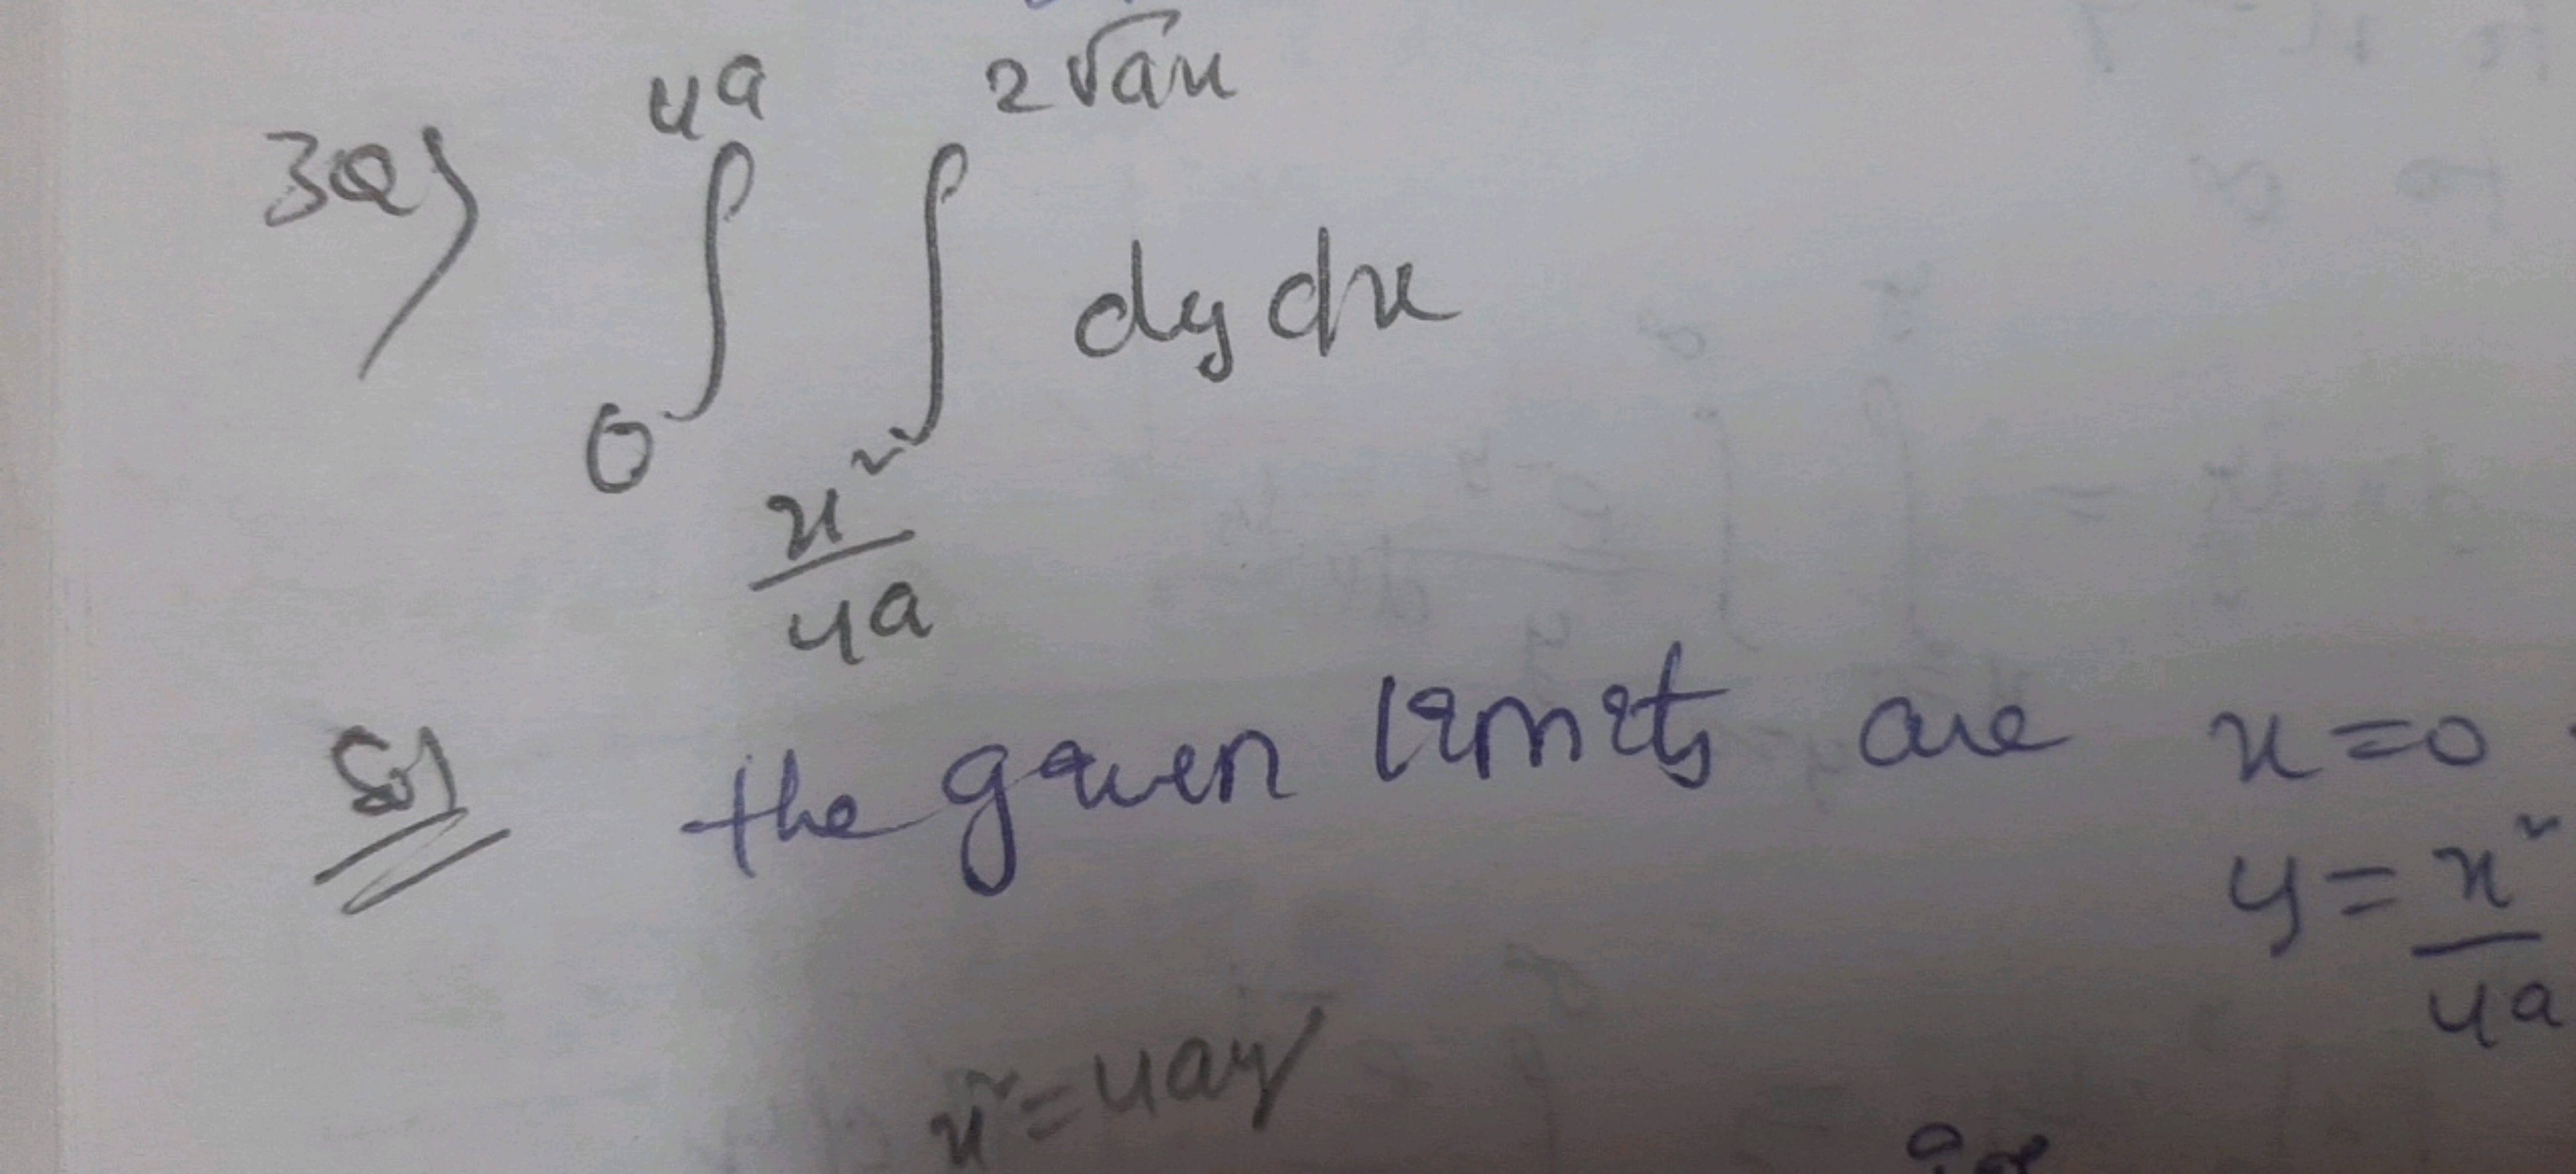 3Q) ∫₀^{4a} ∫_{x²/4a}^{2√ax} dy dx
Sol the given limits are x=0
y = x²/4a
x² = 4ay